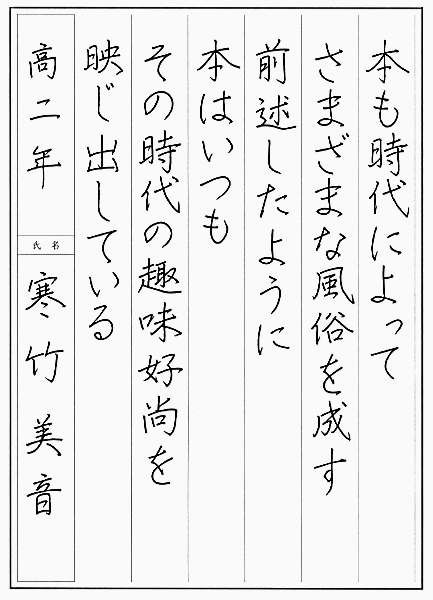 本も時代によって
さまざまな風俗を成す
前述したように
本はいつも
その時代の趣味好尚を
映じ出している
高二年
氏名
寒竹美音